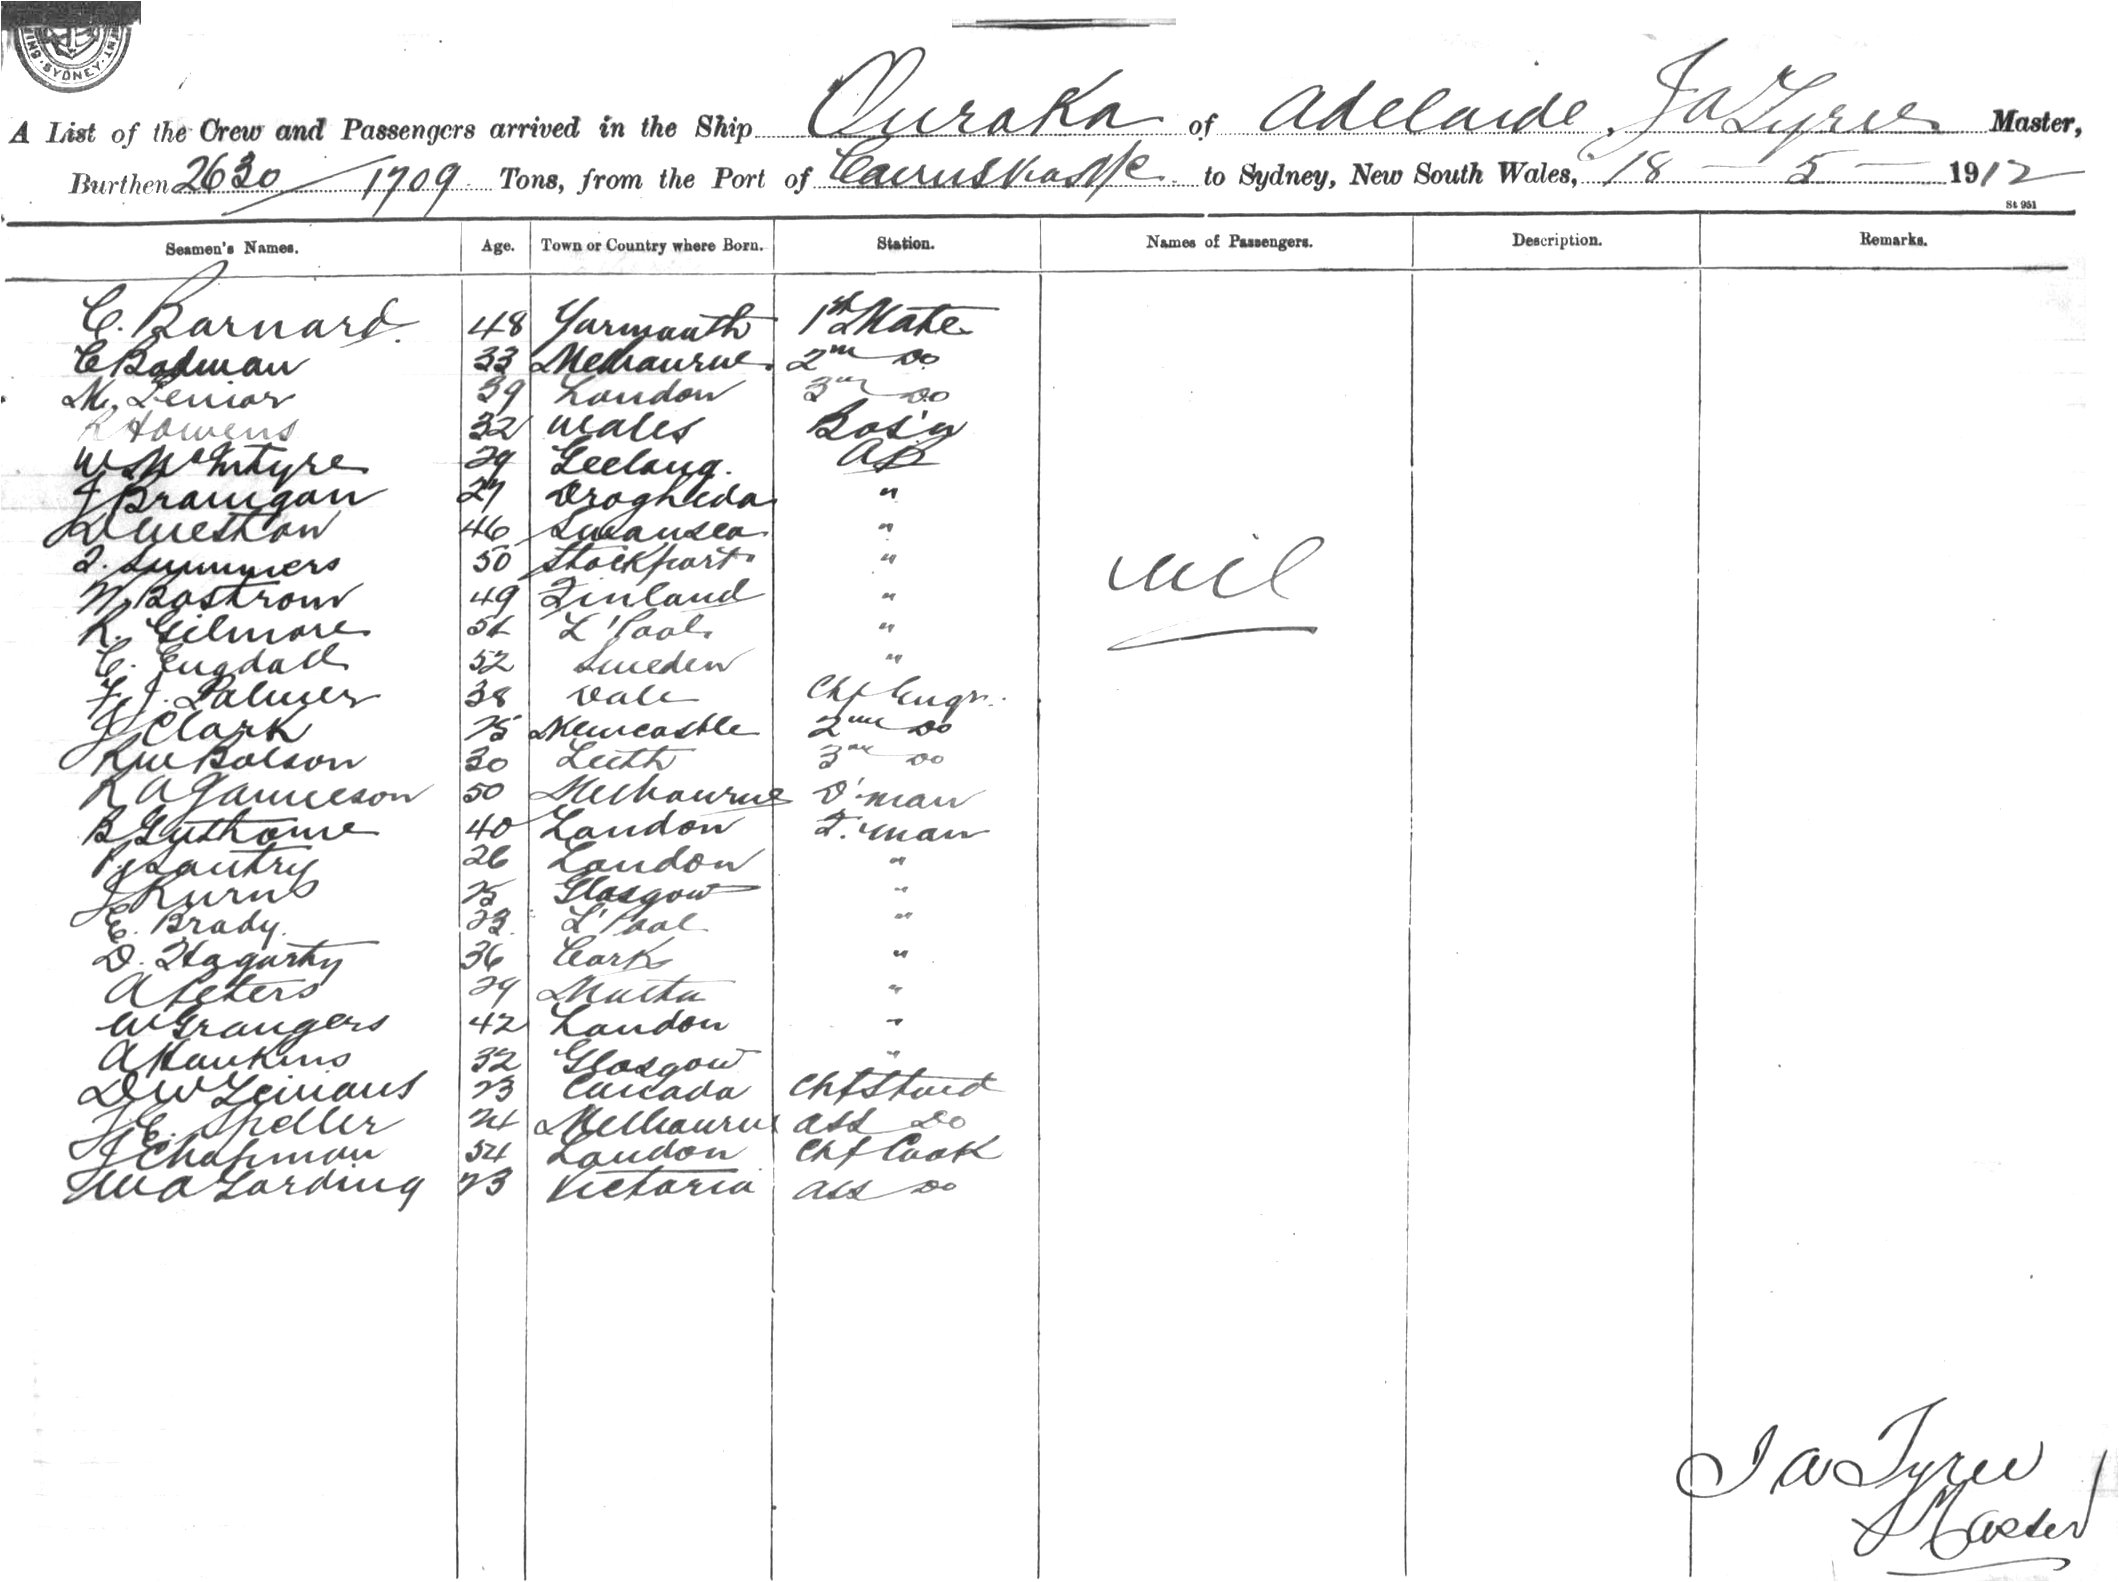 SYDNEY
A List of the Crew and Passengers arrived in the Ship Ouraka of Adelaide, J A Tyree Master,
Burthen 2630/1709 Tons, from the Port of to Sydney, New South Wales, 18 - 5 - 1912
St 951
Seamen's Names. Age. Town or Country where Born. Station. Names of Passengers. Description. Remarks.
C. Barnard. 48 Yarmouth 1st Mate
C Badman 33 Melbourne 2nd do
M. Lenior 39 London 3rd do
R Howens 32 Wales Bos'n
W McIntyre 29 Geelong. AB
J Branigan 27 Drogheda "
D Weston 46 Swansea "
F. Summers 50 Stockport "
N Bostrom 49 Finland "
nil
R. Gilmore 51 L'Pool "
C. Engdall 52 Sweden "
F J. Palmer 38 Vale Chf Engr.
J Clark 25 Newcastle 2nd do
R W Balson 30 Leith 3rd do
R A Jamieson 50 Melbourne D'man
B Guthorne 40 London F.man
P. Lantry 26 London "
J Kurns 25 Glasgow "
E. Brady. 23 L'Pool "
D. Hagarty 36 Cork "
A Peters 29 Malta "
W Grangers 42 London "
A Hankins 32 Glasgow "
D W 23 Canada Chf Stwd
J E. Speller 24 Melbourne ass do
J Chapman 54 London Chf Cook
W A Larding 23 Victoria ass do
J A Tyree
Master